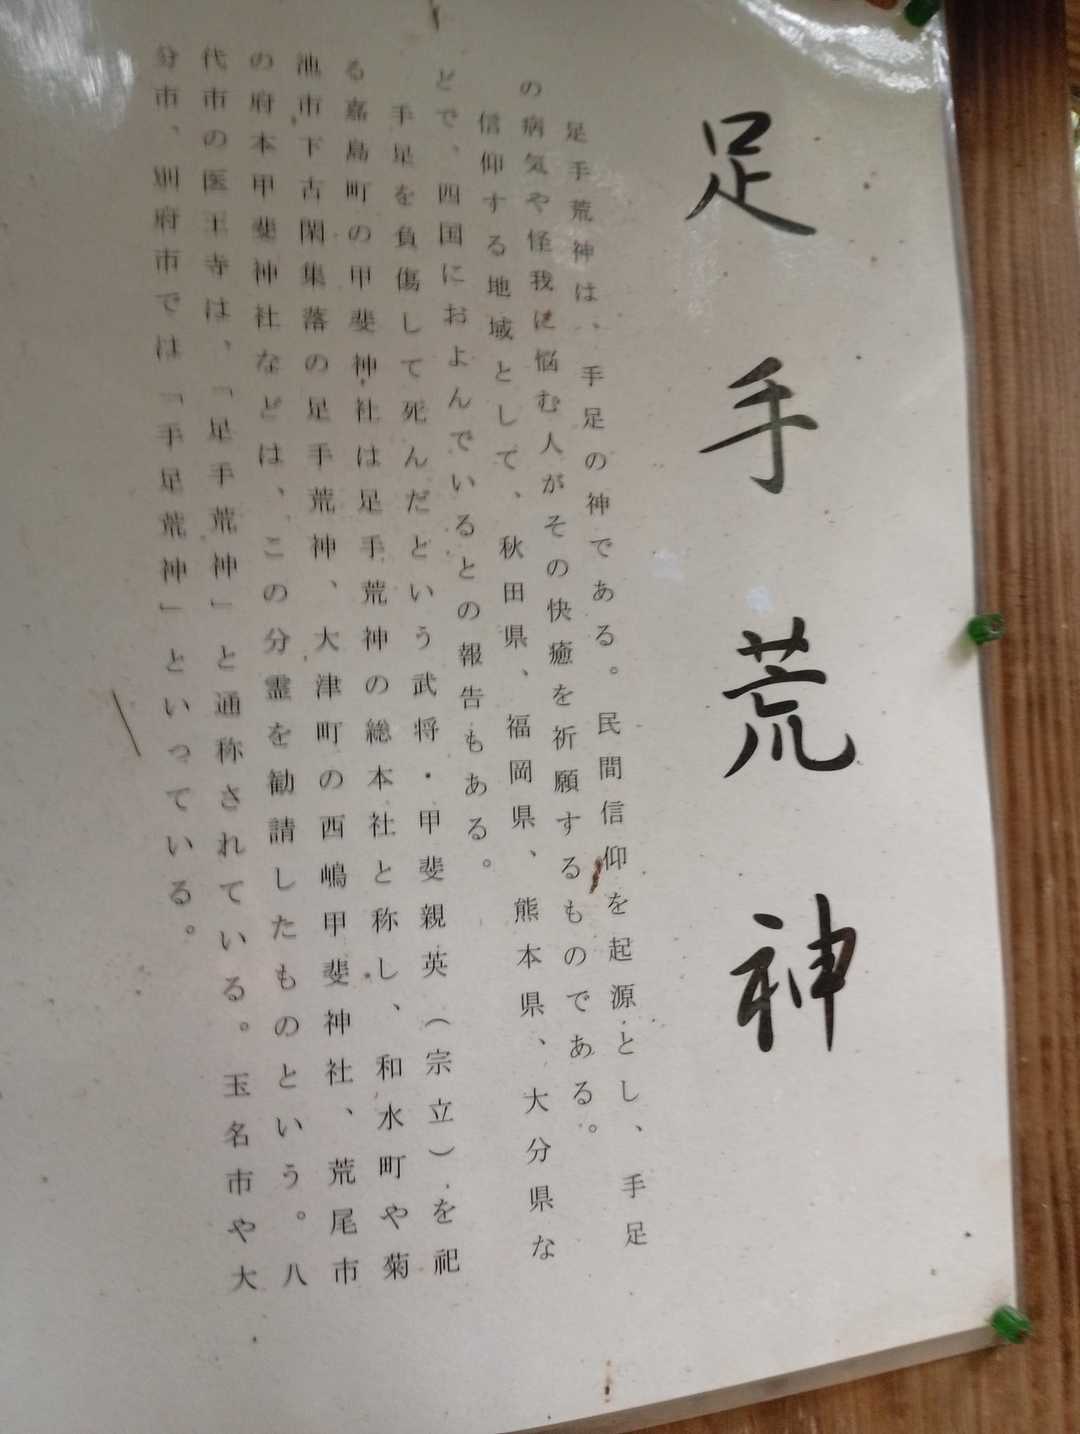 足手荒神
足手荒神は、手足の神である。民間信仰を起源とし、手足
の病気や怪我に悩む人がその快癒を祈願するものである。
信仰する地域として、秋田県、福岡県、熊本県、大分県な
どで、四国におよんでいるとの報告もある。
手足を負傷して死んだという武将・甲斐親英（宗立）を祀
る嘉島町の甲斐神社は足手荒神の総本社と称し、和水町や菊
池市下古閑集落の足手荒神、大津町の西嶋甲斐神社、荒尾市
の府本甲斐神社などは、この分霊を勧請したものという。八
代市の医王寺は、「足手荒神」と通称されている。玉名市や大
分市、別府市では「手足荒神」といっている。